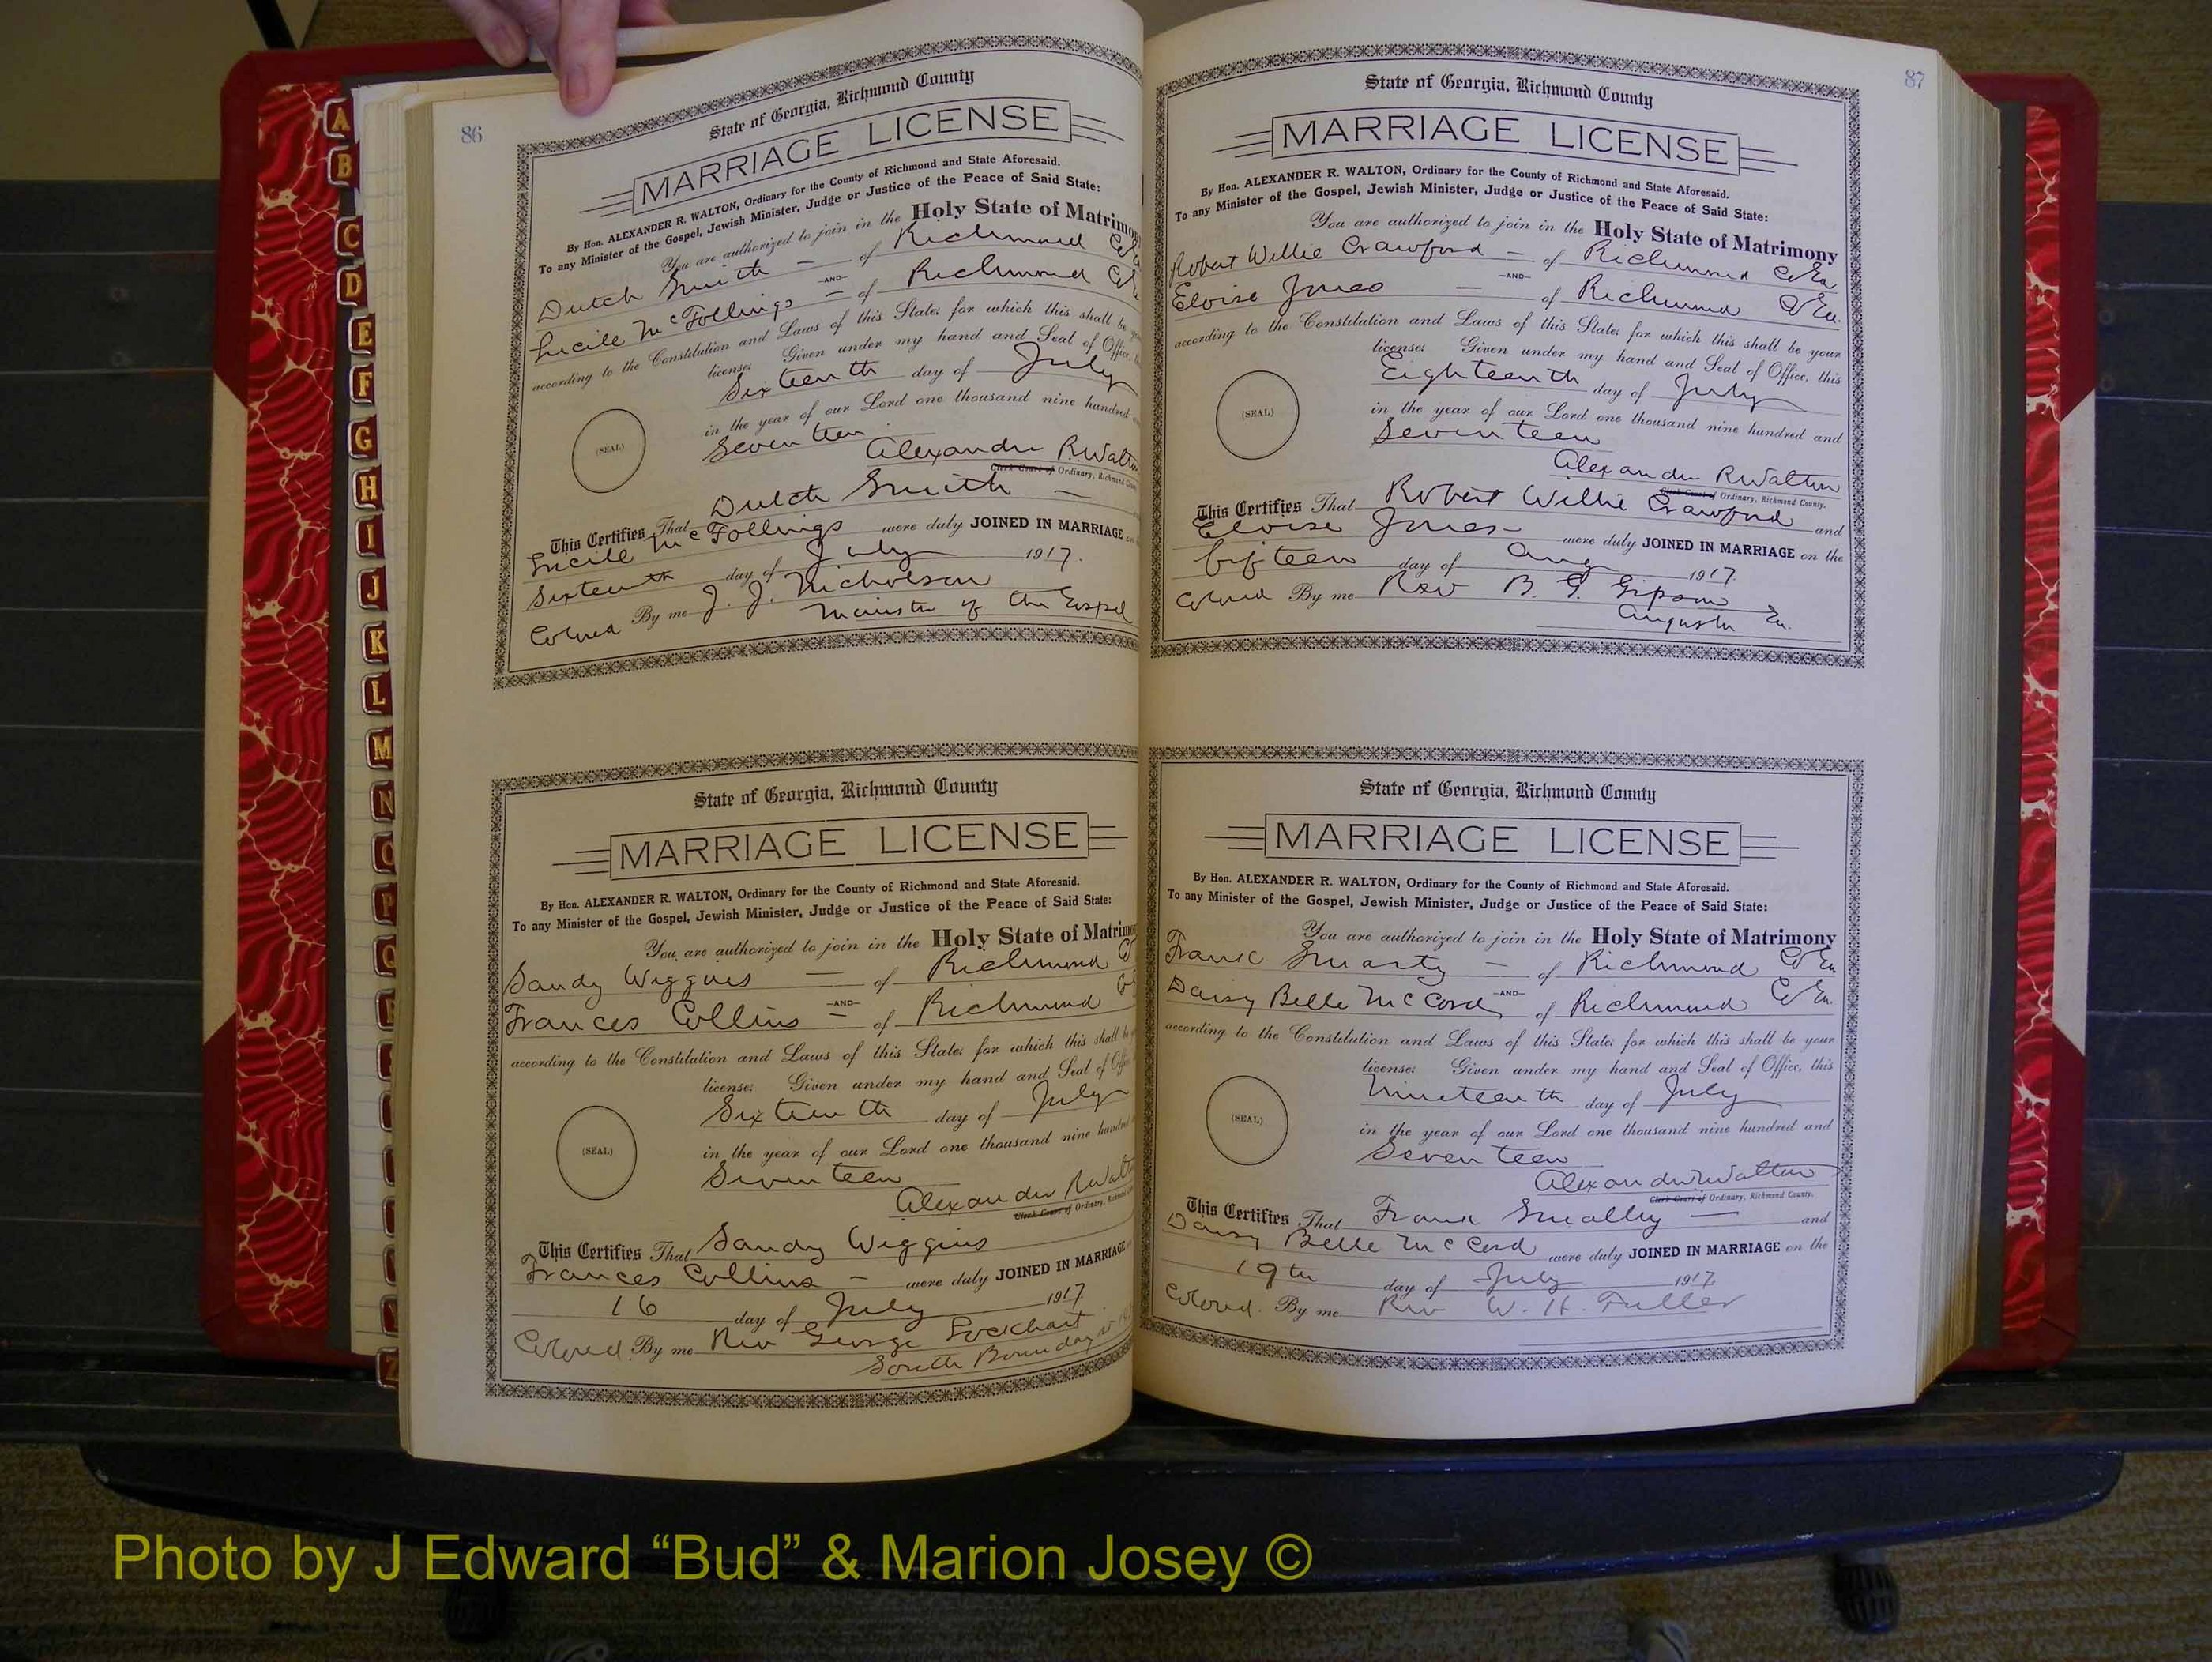 A
B
C
D
E
F
G
H
I
J
K
L
M
N
O
P
Q
Z
86
State of Georgia, Richmond County
MARRIAGE LICENSE
By Hon. ALEXANDER R. WALTON, Ordinary for the County of Richmond and State Aforesaid.
To any Minister of the Gospel, Jewish Minister, Judge or Justice of the Peace of Said State:
You are authorized to join in the Holy State of Matrimo
Dutch Smith - of Richmond Co
AND
Lucile McFollings - of Richmond Co
according to the Constitution and Laws of this State; for which this shall be
license: Given under my hand and Seal of Office,
Sixteenth day of July
in the year of our Lord one thousand nine hundred
Seventeen
(SEAL)
Alexander R Walt
Clerk Court of Ordinary, Richmond
This Certifies That Dutch Smith
Lucile McFollings were duly JOINED IN MARRIAGE
Sixteenth day of July 1917.
Colored By me J. J. Nicholson
Minister of the Gospel
State of Georgia, Richmond County
MARRIAGE LICENSE
By Hon. ALEXANDER R. WALTON, Ordinary for the County of Richmond and State Aforesaid.
To any Minister of the Gospel, Jewish Minister, Judge or Justice of the Peace of Said State:
You are authorized to join in the Holy State of Matrim
Sandy Wiggins - of Richmond
AND
Frances Collins - of Richmond
according to the Constitution and Laws of this State; for which this shall be
license: Given under my hand and Seal of Off
Sixteenth day of July
in the year of our Lord one thousand nine hundred
Seventeen
(SEAL)
Alexander R Walt
Clerk Court of Ordinary,
This Certifies That Sandy Wiggins
Frances Collins - were duly JOINED IN MARRIAGE
16 day of July 1917
Colored By me Rev George Lockhart
South Boundary
87
State of Georgia, Richmond County
MARRIAGE LICENSE
By Hon. ALEXANDER R. WALTON, Ordinary for the County of Richmond and State Aforesaid.
To any Minister of the Gospel, Jewish Minister, Judge or Justice of the Peace of Said State:
You are authorized to join in the Holy State of Matrimony
Robert Willie Crawford - of Richmond Co Ga
AND
Eloise Jones - of Richmond Co Ga.
according to the Constitution and Laws of this State; for which this shall be your
license: Given under my hand and Seal of Office, this
Eighteenth day of July
in the year of our Lord one thousand nine hundred and
Seventeen
(SEAL)
Alexander R Walton
Clerk Court of Ordinary, Richmond County.
This Certifies That Robert Willie Crawford and
Eloise Jones - were duly JOINED IN MARRIAGE on the
fifteen day of Aug 1917.
Colored By me Rev B. G. Gipson
Augusta Ga.
State of Georgia, Richmond County
MARRIAGE LICENSE
By Hon. ALEXANDER R. WALTON, Ordinary for the County of Richmond and State Aforesaid.
To any Minister of the Gospel, Jewish Minister, Judge or Justice of the Peace of Said State:
You are authorized to join in the Holy State of Matrimony
Frank Smarty - of Richmond Co Ga
AND
Daisy Belle McCord of Richmond Co Ga.
according to the Constitution and Laws of this State; for which this shall be your
license: Given under my hand and Seal of Office, this
Nineteenth day of July
in the year of our Lord one thousand nine hundred and
Seventeen
(SEAL)
Alexander R Walton
Clerk Court of Ordinary, Richmond County.
This Certifies That Frank Smalley - and
Daisy Belle McCord were duly JOINED IN MARRIAGE on the
19th day of July 1917
Colored. By me Rev W. H. Fuller
Photo by J Edward “Bud” & Marion Josey ©